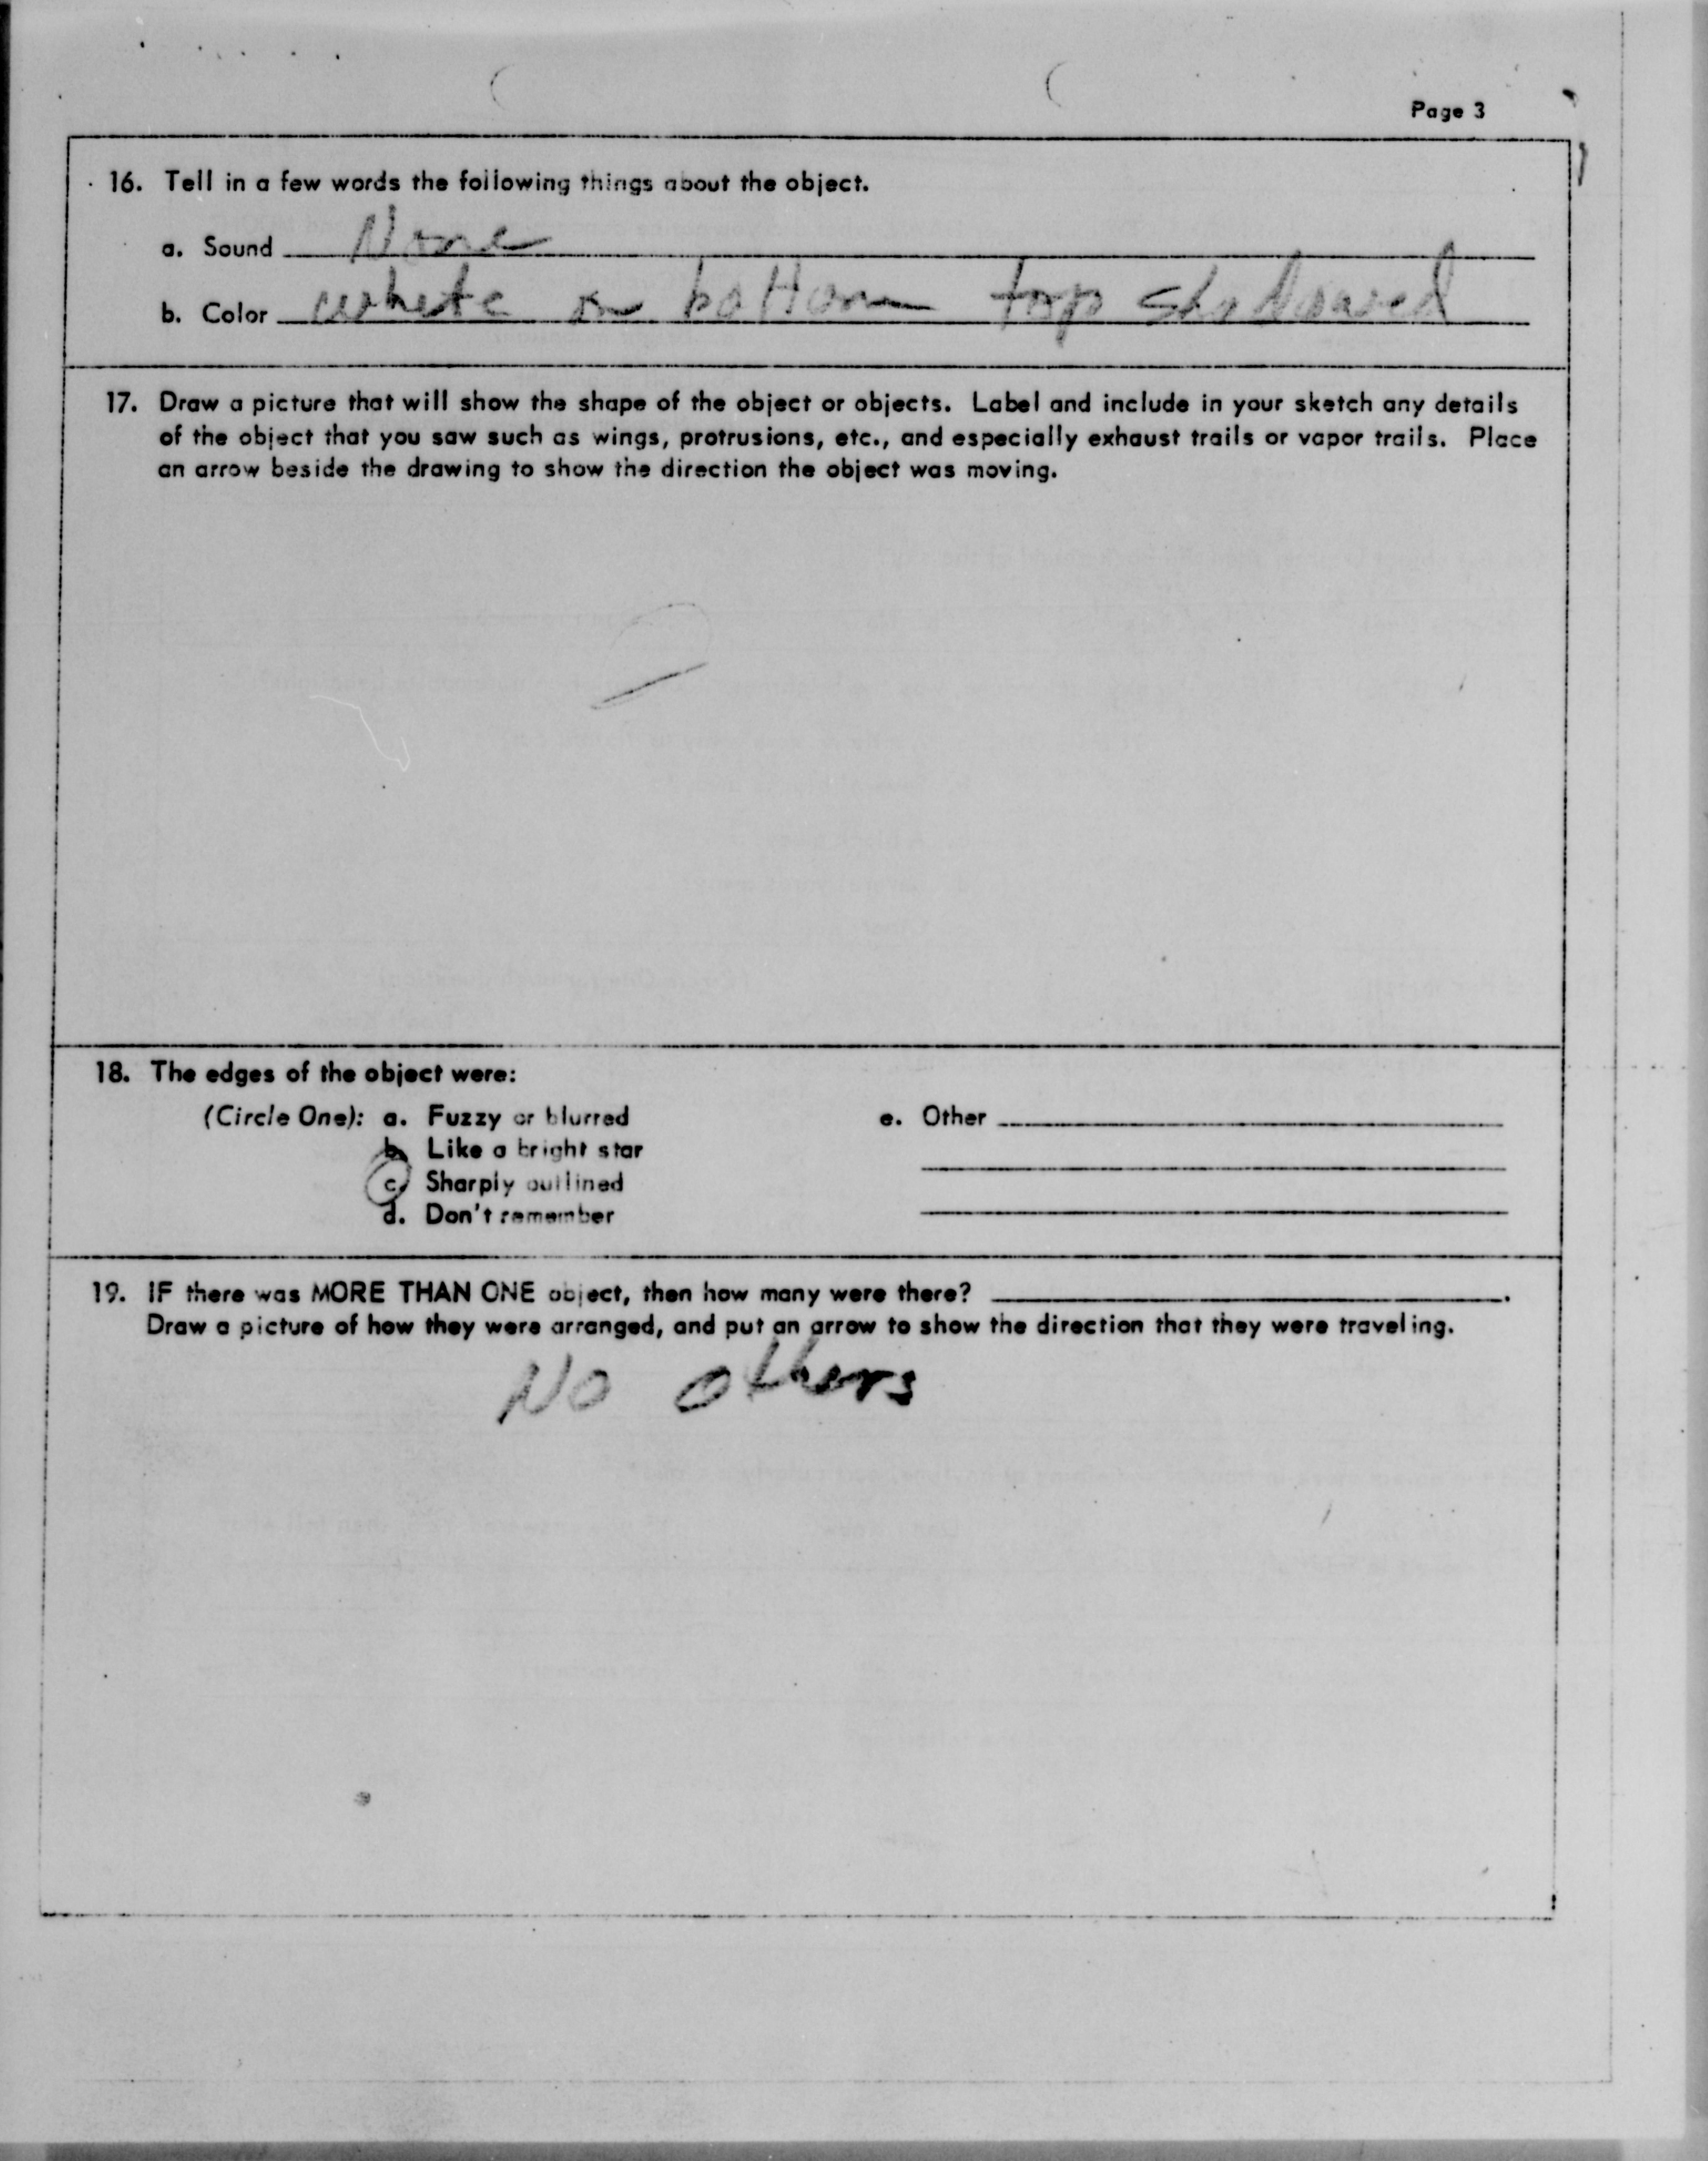 Page 3
16. Tell in a few words the following things about the object.
a. Sound None
b. Color white on bottom top shadowed
17. Draw a picture that will show the shape of the object or objects. Label and include in your sketch any details
of the object that you saw such as wings, protrusions, etc., and especially exhaust trails or vapor trails. Place
an arrow beside the drawing to show the direction the object was moving.
18. The edges of the object were:
(Circle One): a. Fuzzy or blurred
b. Like a bright star
c. Sharply outlined
d. Don't remember
e. Other
19. IF there was MORE THAN ONE object, then how many were there? .
Draw a picture of how they were arranged, and put an arrow to show the direction that they were traveling.
No others